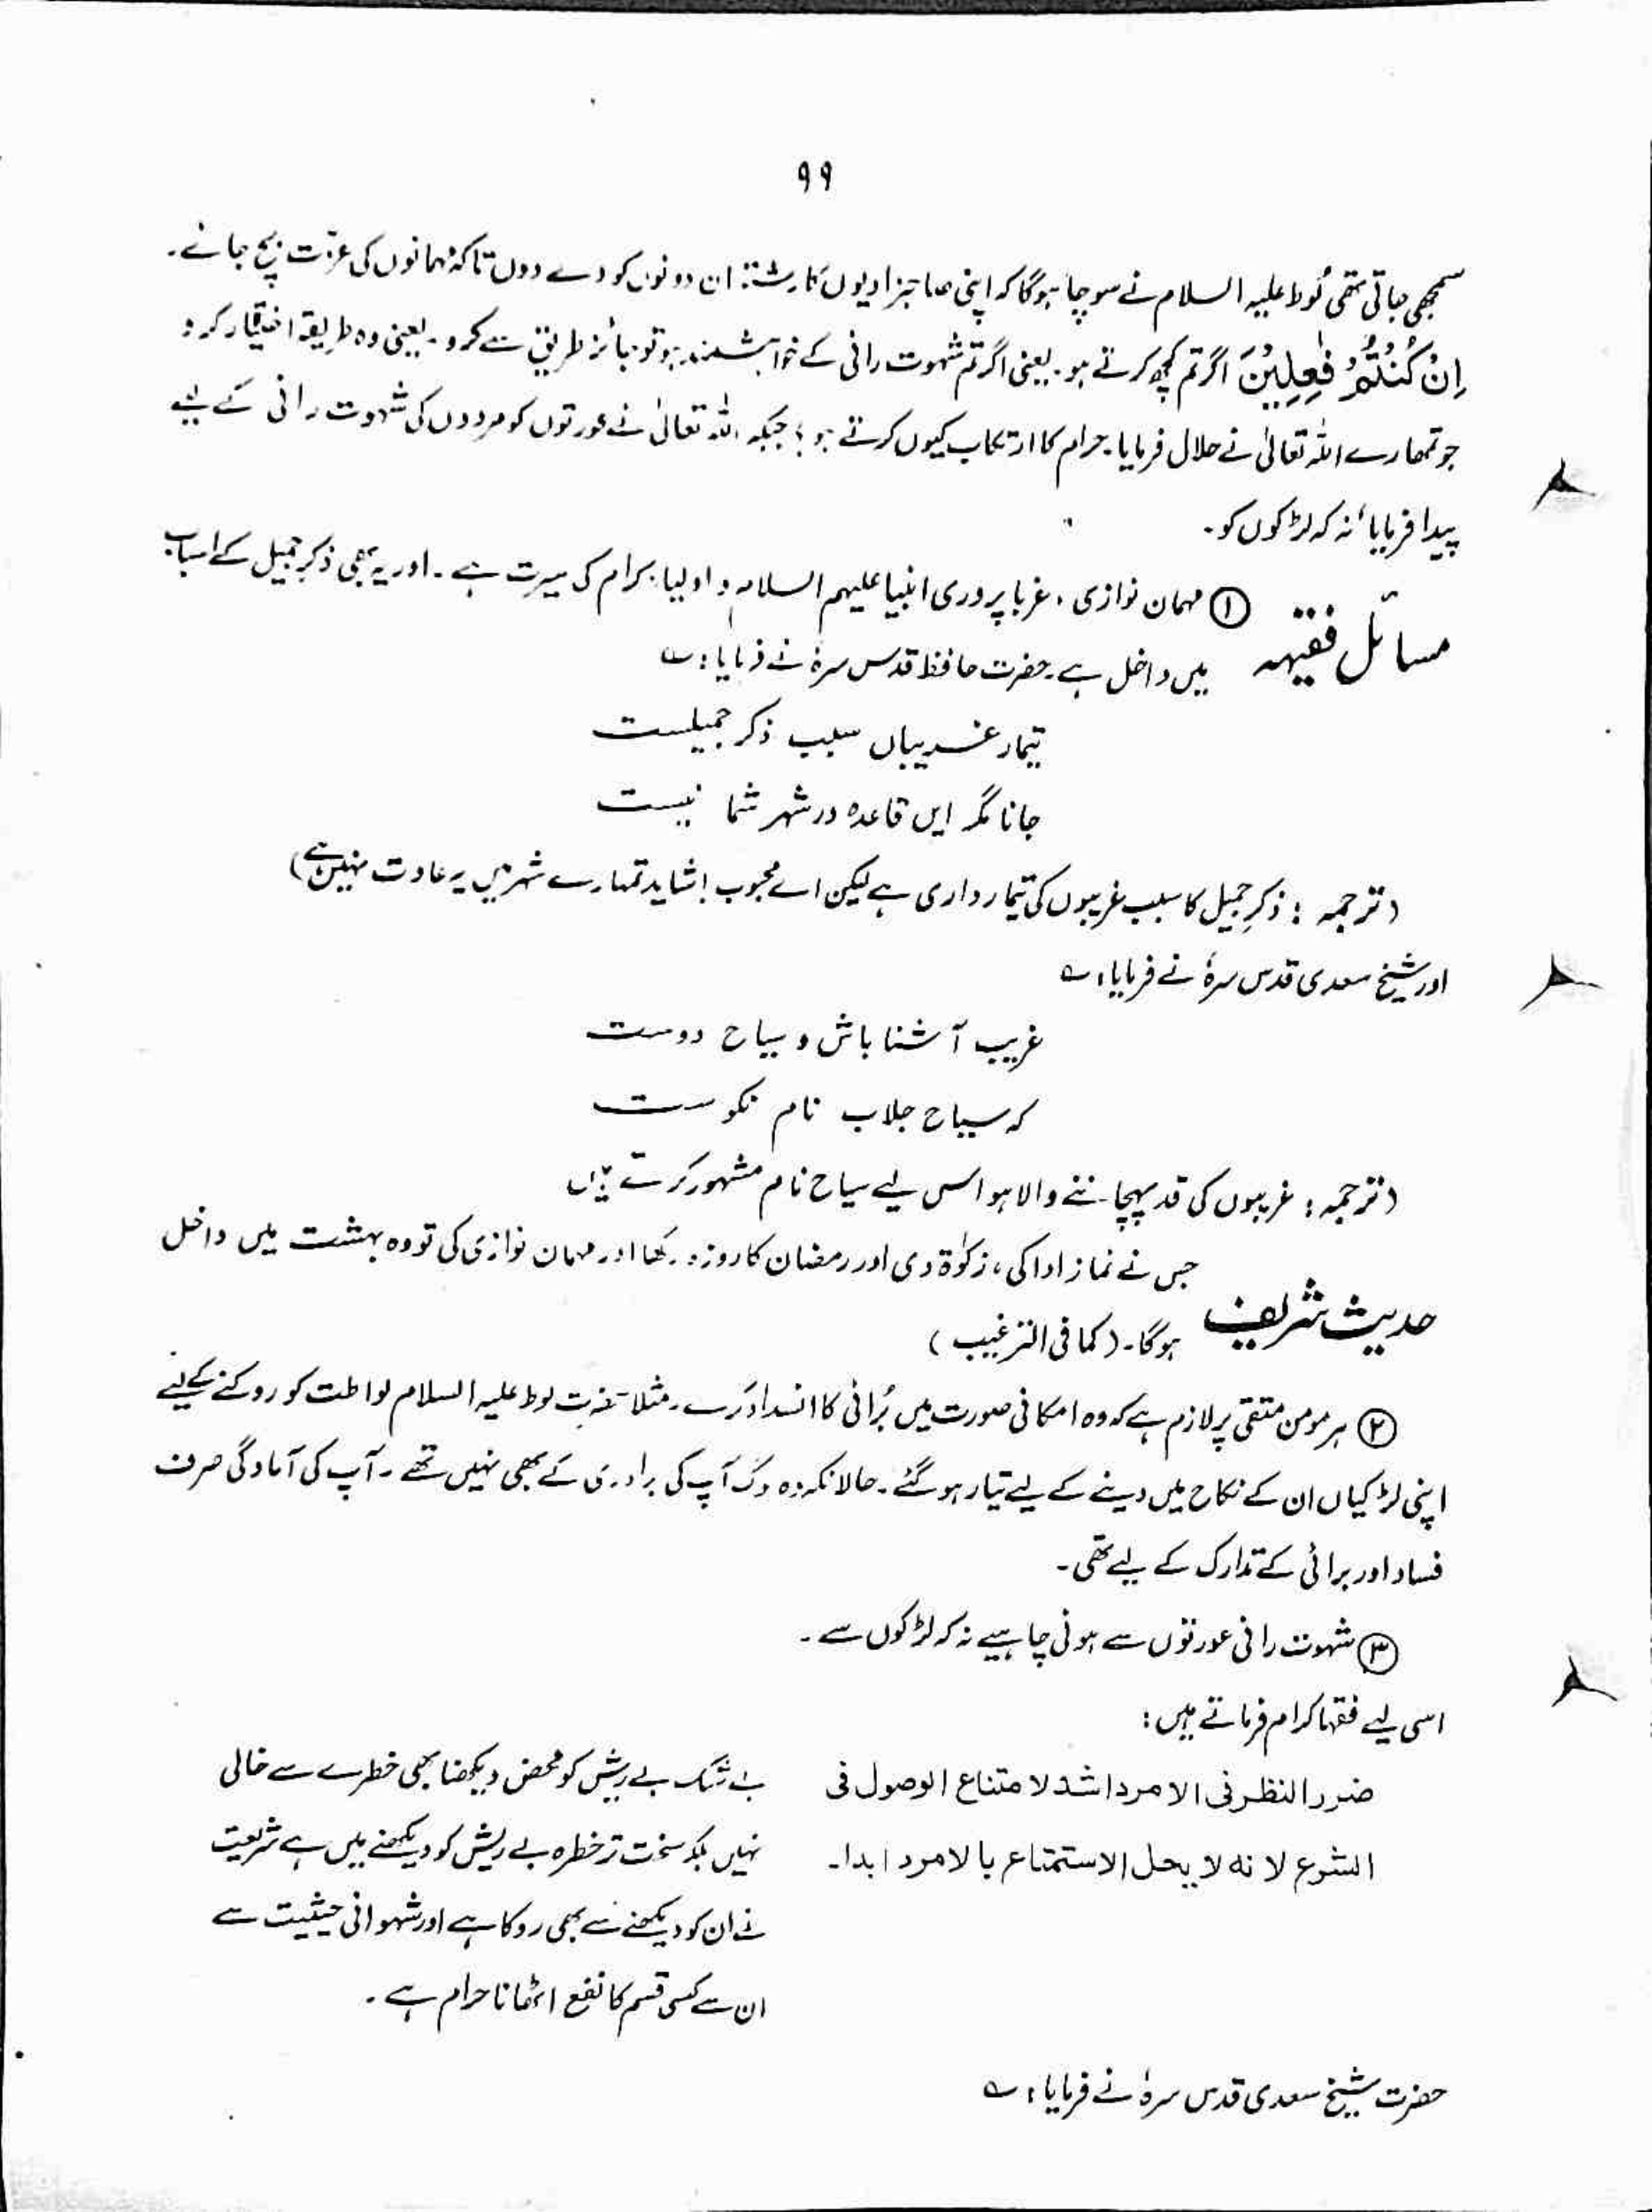 ۹۹
سمجھی جاتی تھی لُوط علیہ السلام نے سوچا ہوگا کہ اپنی صاحبزادیوں کا رشتہ ان دونوں کو دے دوں تاکہ مہمانوں کی عزت بچ جائے۔
اِنْ كُنْتُمْ فٰعِلِيْنَ اگر تم کچھ کرتے ہو۔ یعنی اگر تم شہوت رانی کے خواہشمند ہو تو جائز طریق سے کرو۔ یعنی وہ طریقہ اختیار کرو
جو تمھارے اللہ تعالیٰ نے حلال فرمایا۔ حرام کا ارتکاب کیوں کرتے ہو؛ جبکہ اللہ تعالیٰ نے عورتوں کو مردوں کی شہوت رانی کے لیے
پیدا فرمایا، نہ کہ لڑکوں کو۔
مسائل فقہیہ ① مہمان نوازی، غربا پروری انبیا علیہم السلام و اولیاء کرام کی سیرت ہے۔ اور یہ بھی ذکر جمیل کے اسباب
میں داخل ہے۔ حضرت حافظ قدس سرہٗ نے فرمایا: ؎
تیمار غریباں سبب ذکر جمیلست
جانا مگر ایں قاعدہ در شہر شما نیست
(ترجمہ: ذکرِ جمیل کا سبب غریبوں کی تیمارداری ہے لیکن اے محبوب! شاید تمہارے شہر میں یہ عادت نہیں ہے)
اور شیخ سعدی قدس سرہٗ نے فرمایا: ؎
غریب آشنا باش و سیاح دوست
کہ سیاح جلاب نام نکوست
(ترجمہ: غریبوں کی قدر پہچاننے والا ہو اس لیے سیاح نام مشہور کرتے ہیں
حدیث شریف جس نے نماز ادا کی، زکوٰۃ دی اور رمضان کا روزہ رکھا اور مہمان نوازی کی تو وہ بہشت میں داخل
ہوگا۔ (کما فی الترغیب)
② ہر مومن متقی پر لازم ہے کہ وہ امکانی صورت میں بُرائی کا انسداد کرے۔ مثلاً حضرت لوط علیہ السلام لواطت کو روکنے کے لیے
اپنی لڑکیاں ان کے نکاح میں دینے کے لیے تیار ہو گئے۔ حالانکہ وہ لوگ آپ کی برادری کے بھی نہیں تھے۔ آپ کی آمادگی صرف
فساد اور برائی کے تدارک کے لیے تھی۔
③ شہوت رانی عورتوں سے ہونی چاہیے نہ کہ لڑکوں سے۔
اسی لیے فقہا کرام فرماتے ہیں:
ضرر النظر فی الامرد اشد لامتناع الوصول فی
الشرع لانه لا یحل الاستمتاع بالامرد ابدا۔
بے شک بے ریش کو محض دیکھنا بھی خطرے سے خالی
نہیں بلکہ سخت تر خطرہ بے ریش کو دیکھنے میں ہے شریعت
نے ان کو دیکھنے سے بھی روکا ہے اور شہوانی حیثیت سے
ان سے کسی قسم کا نفع اٹھانا حرام ہے۔
حضرت شیخ سعدی قدس سرہٗ نے فرمایا: ؎